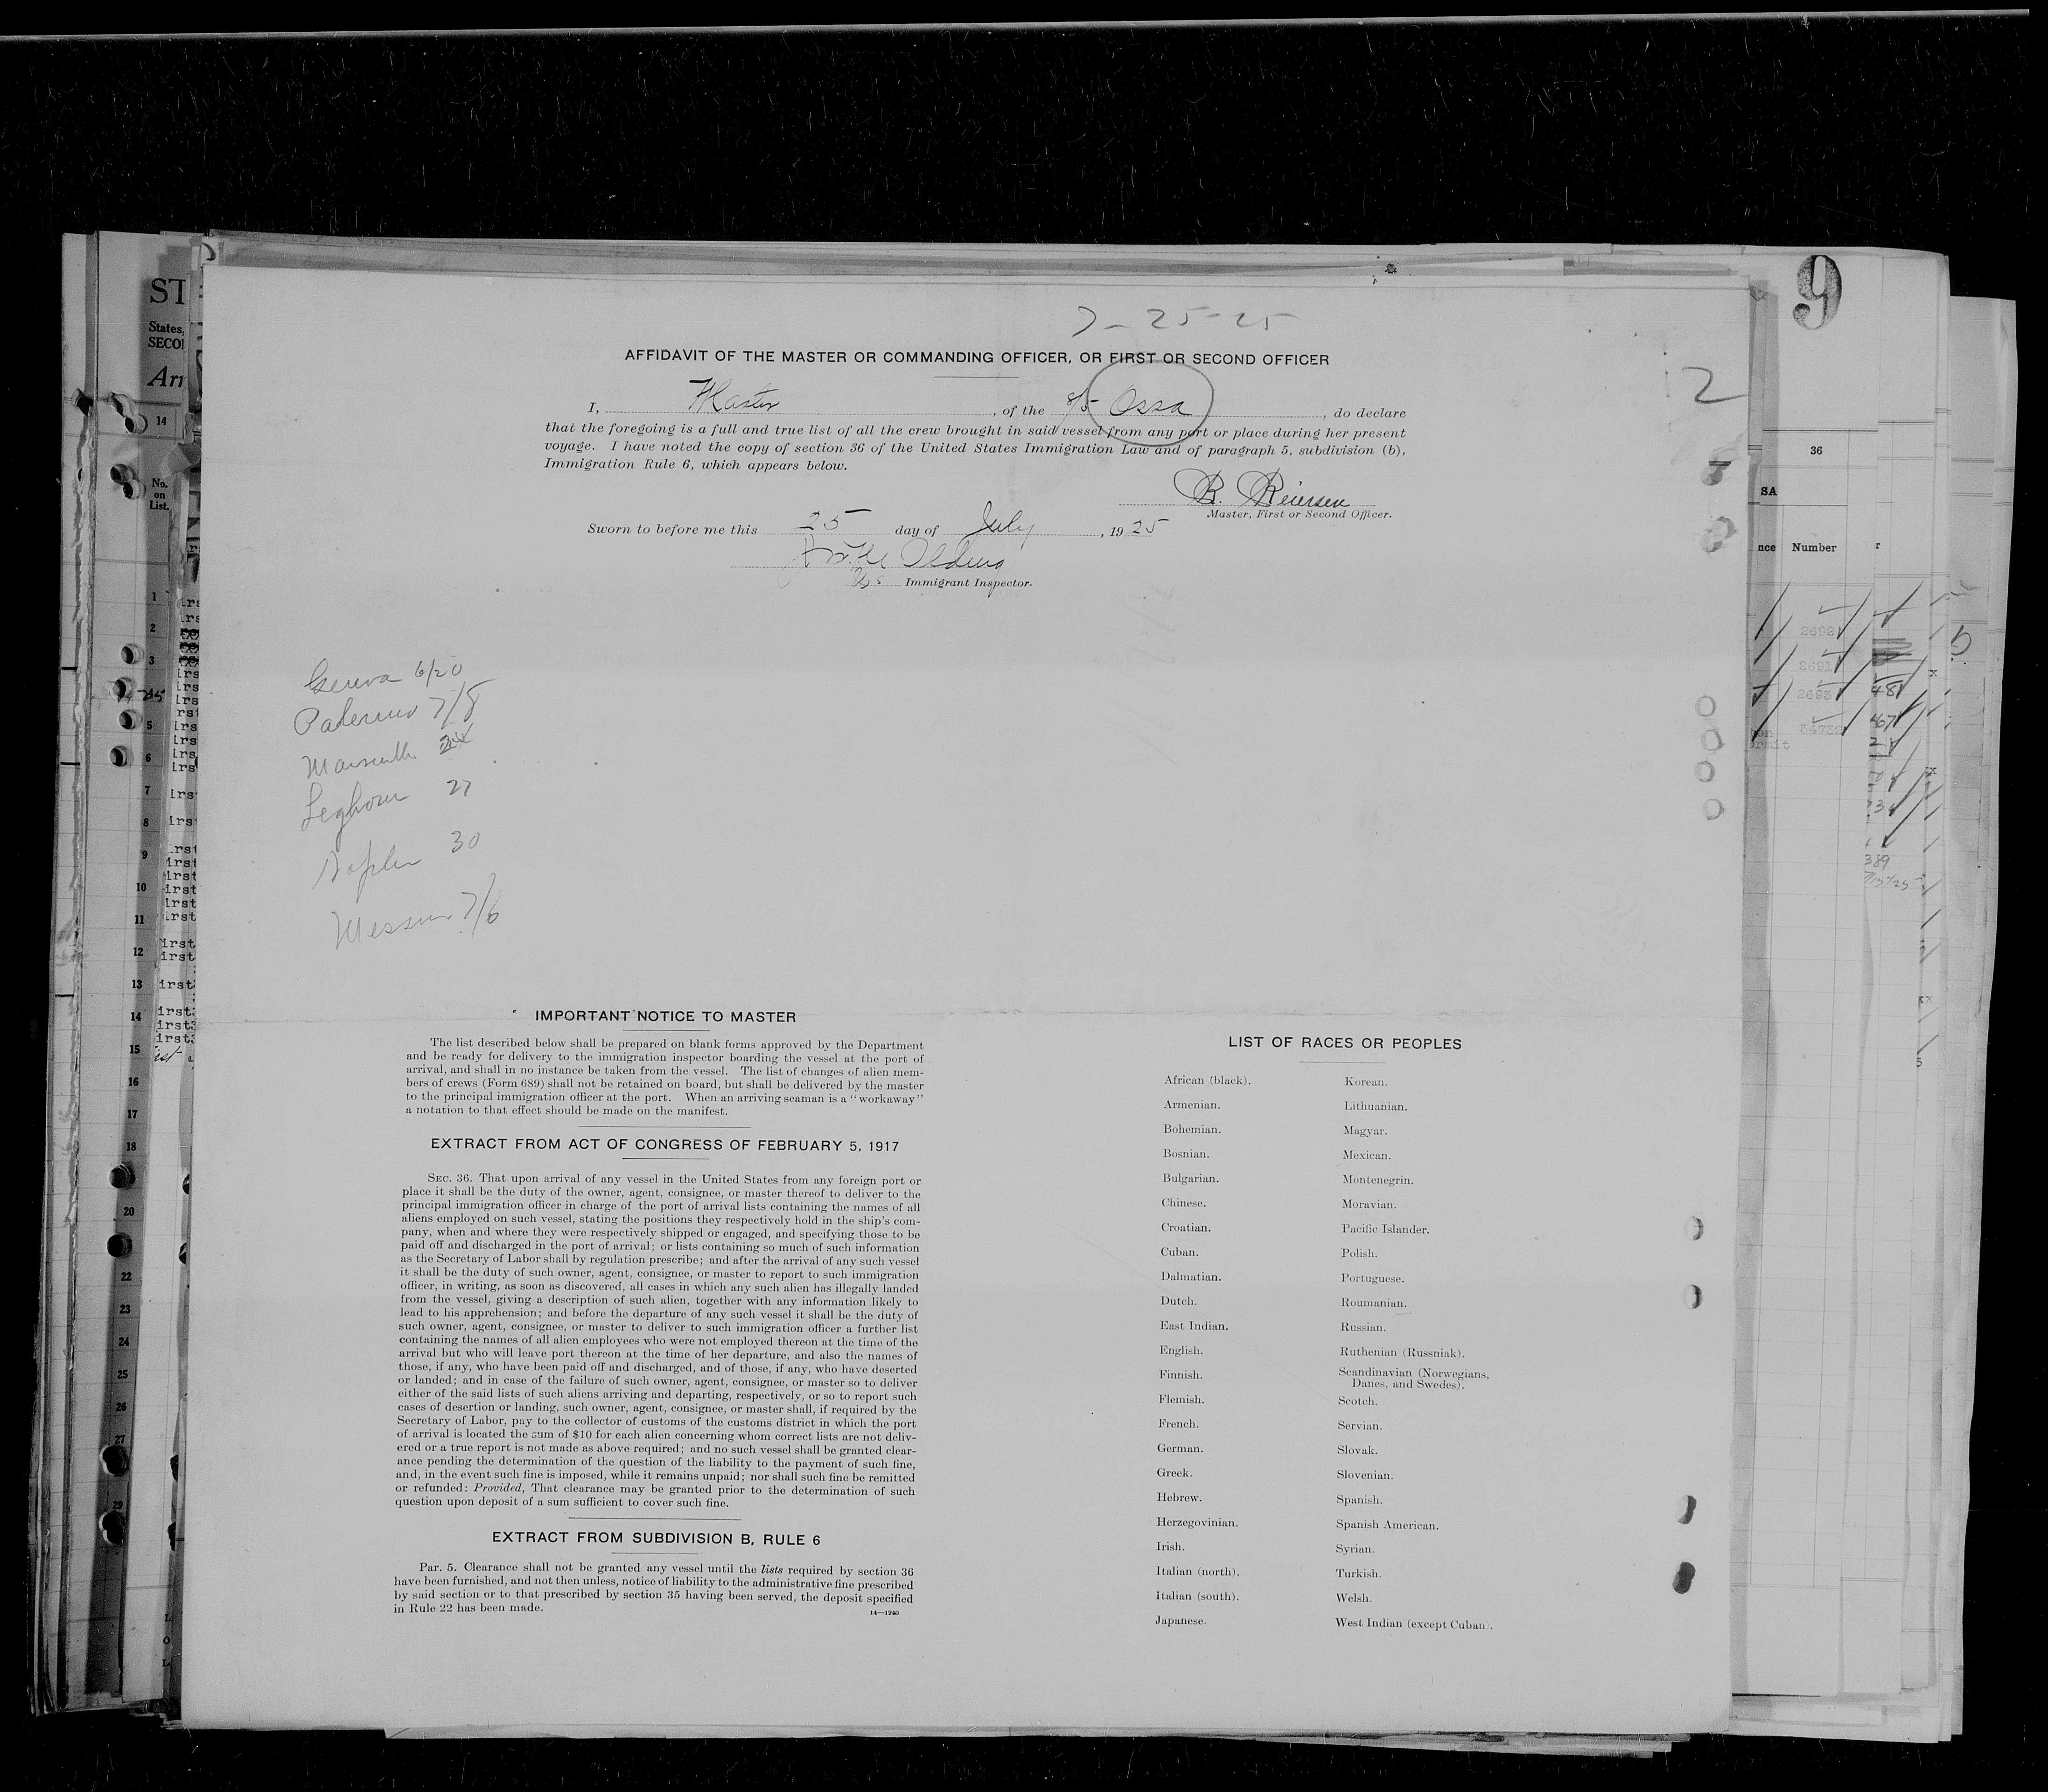 7-25-25
AFFIDAVIT OF THE MASTER OR COMMANDING OFFICER, OR FIRST OR SECOND OFFICER
12
I, Master, of the S/S Ossa, do declare
that the foregoing is a full and true list of all the crew brought in said vessel from any port or place during her present
voyage. I have noted the copy of section 36 of the United States Immigration Law and of paragraph 5, subdivision (b),
Immigration Rule 6, which appears below.
B. Reiersen
Master, First or Second Officer.
Sworn to before me this 25 day of July, 1925
Immigrant Inspector.
Genoa 6/20
Palermo 7/8
Marseille 24
Leghorn 27
Naples 30
Messina 7/6
IMPORTANT NOTICE TO MASTER
The list described below shall be prepared on blank forms approved by the Department
and be ready for delivery to the immigration inspector boarding the vessel at the port of
arrival, and shall in no instance be taken from the vessel. The list of changes of alien mem-
bers of crews (Form 689) shall not be retained on board, but shall be delivered by the master
to the principal immigration officer at the port. When an arriving seaman is a "workaway"
a notation to that effect should be made on the manifest.
EXTRACT FROM ACT OF CONGRESS OF FEBRUARY 5, 1917
SEC. 36. That upon arrival of any vessel in the United States from any foreign port or
place it shall be the duty of the owner, agent, consignee, or master thereof to deliver to the
principal immigration officer in charge of the port of arrival lists containing the names of all
aliens employed on such vessel, stating the positions they respectively hold in the ship's com-
pany, when and where they were respectively shipped or engaged, and specifying those to be
paid off and discharged in the port of arrival; or lists containing so much of such information
as the Secretary of Labor shall by regulation prescribe; and after the arrival of any such vessel
it shall be the duty of such owner, agent, consignee, or master to report to such immigration
officer, in writing, as soon as discovered, all cases in which any such alien has illegally landed
from the vessel, giving a description of such alien, together with any information likely to
lead to his apprehension; and before the departure of any such vessel it shall be the duty of
such owner, agent, consignee, or master to deliver to such immigration officer a further list
containing the names of all alien employees who were not employed thereon at the time of the
arrival but who will leave port thereon at the time of her departure, and also the names of
those, if any, who have been paid off and discharged, and of those, if any, who have deserted
or landed; and in case of the failure of such owner, agent, consignee, or master so to deliver
either of the said lists of such aliens arriving and departing, respectively, or so to report such
cases of desertion or landing, such owner, agent, consignee, or master shall, if required by the
Secretary of Labor, pay to the collector of customs of the customs district in which the port
of arrival is located the sum of $10 for each alien concerning whom correct lists are not deliv-
ered or a true report is not made as above required; and no such vessel shall be granted clear-
ance pending the determination of the question of the liability to the payment of such fine,
and, in the event such fine is imposed, while it remains unpaid; nor shall such fine be remitted
or refunded: Provided, That clearance may be granted prior to the determination of such
question upon deposit of a sum sufficient to cover such fine.
EXTRACT FROM SUBDIVISION B, RULE 6
Par. 5. Clearance shall not be granted any vessel until the lists required by section 36
have been furnished, and not then unless, notice of liability to the administrative fine prescribed
by said section or to that prescribed by section 35 having been served, the deposit specified
in Rule 22 has been made.
14—1240
LIST OF RACES OR PEOPLES
African (black).
Armenian.
Bohemian.
Bosnian.
Bulgarian.
Chinese.
Croatian.
Cuban.
Dalmatian.
Dutch.
East Indian.
English.
Finnish.
Flemish.
French.
German.
Greek.
Hebrew.
Herzegovinian.
Irish.
Italian (north).
Italian (south).
Japanese.
Korean.
Lithuanian.
Magyar.
Mexican.
Montenegrin.
Moravian.
Pacific Islander.
Polish.
Portuguese.
Roumanian.
Russian.
Ruthenian (Russniak).
Scandinavian (Norwegians,
Danes, and Swedes).
Scotch.
Servian.
Slovak.
Slovenian.
Spanish.
Spanish American.
Syrian.
Turkish.
Welsh.
West Indian (except Cuban).
9
36
Number
2692
2691
2693
54732